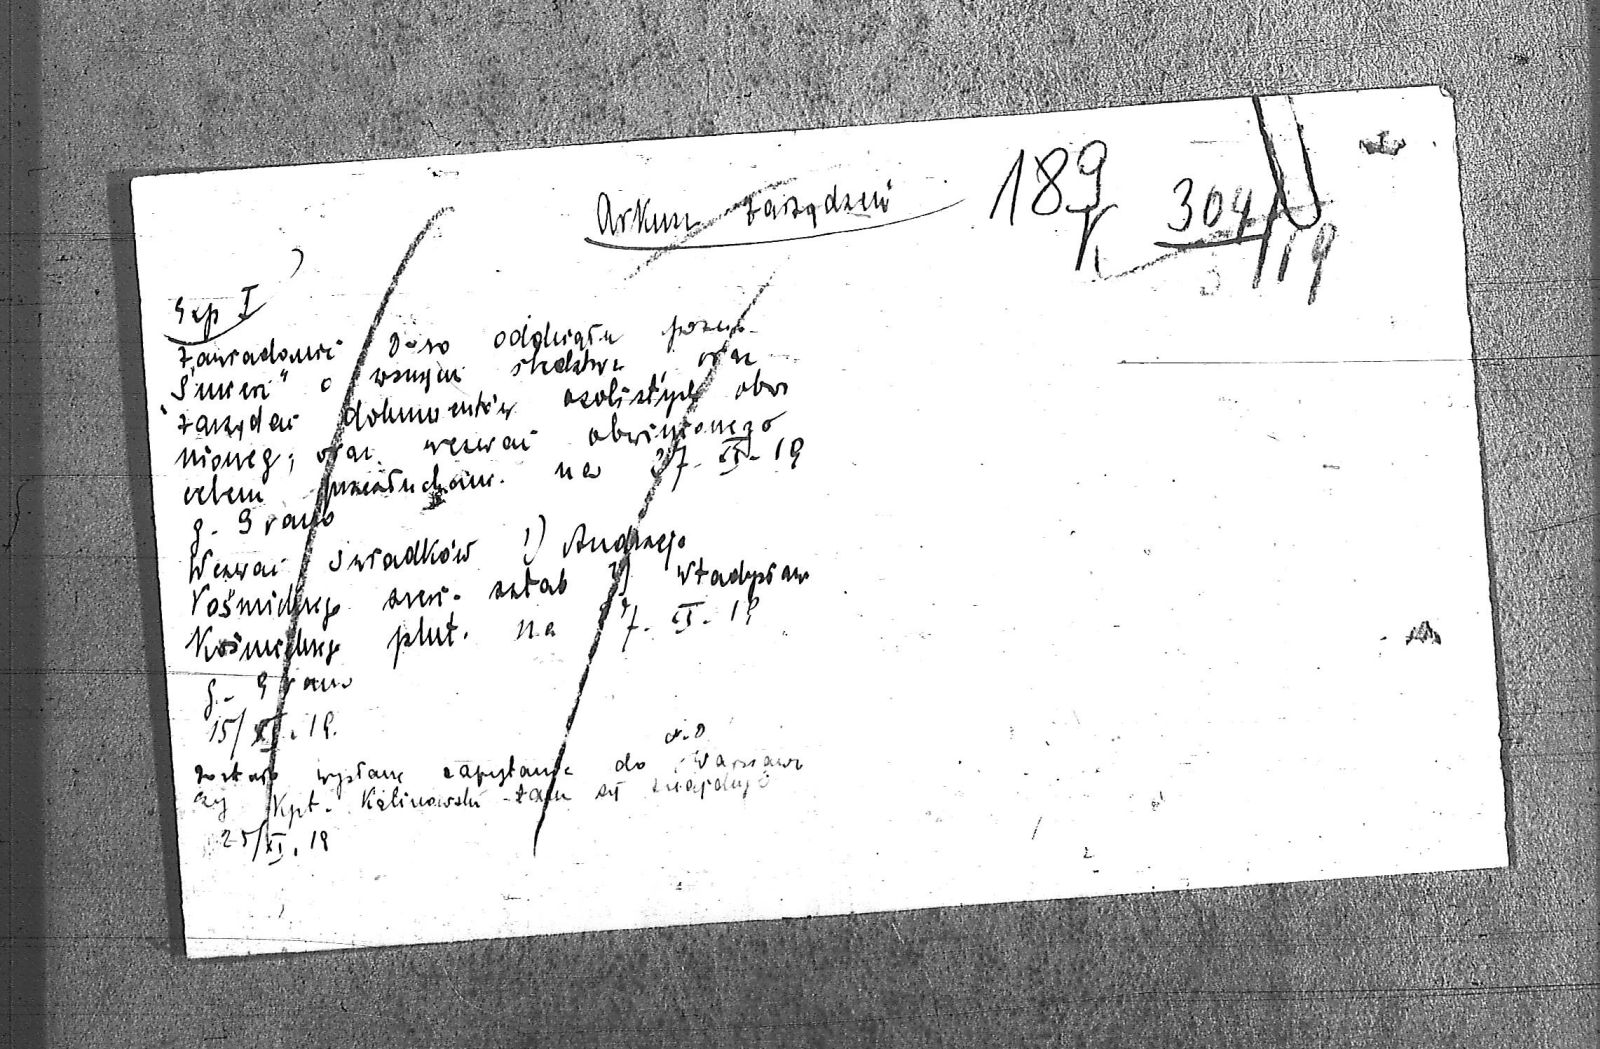 Arkusz zarządzeń
189
304/19
Exp I
Zawiadomić D-wo oddziału
"Śmierci" o wszczęciu śledztwa, oraz
zażądać dokumentów osobistych obwi
nioneg, oraz wezwać obwinionego
celem przesłuchani. na 27. XI. 19
g. 9 rano
Wezwać świadków 1) Andrzeja
Kośmickiego sierż. sztab 2) Władysław
Kośmickiego plut. na 27. XI. 19
g. 9 rano
15/XI. 19.
zostało wysłane zapytanie do Warszawy
czy Kpt. Kalinowski tam się znajduje
25/XI. 19